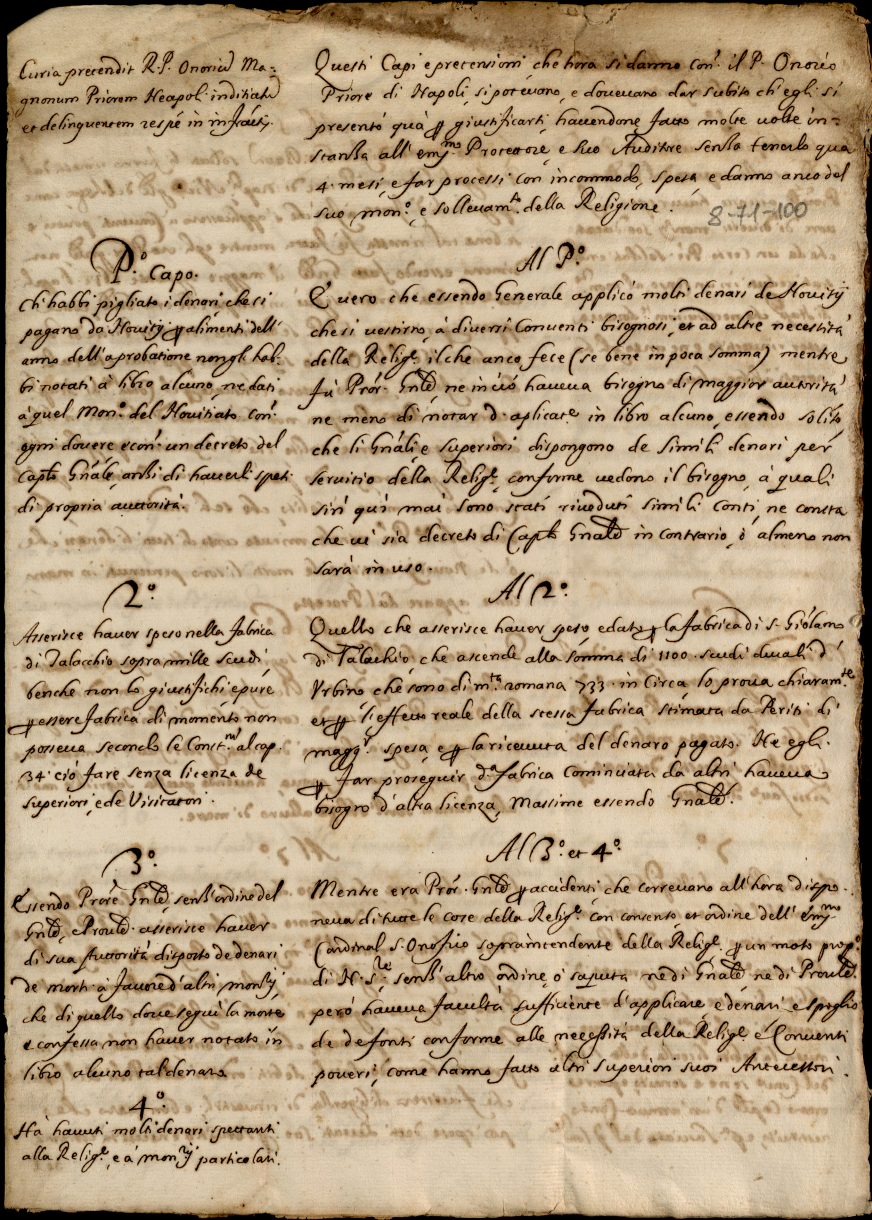 Curia pretendit R. P. Onoriũ Ma-
gnonum Priorem Neapol. inditiatũ
et delinquentem respē in infr̃tis.
Questi Capi e pretensioni, che hora si danno con.ª il P. Onorio
Priore di Napoli, si potevano, e dovevano dar subito ch'egli si
presentò quà ꝑ giustificarsi, havendone fatto molte volte in-
stanza all'em̃.mo Protettore, e suo Auditore senza tenerlo qua
4. mesi, e far processi con incommodo, spesa, e danno anco del
suo mon.º, e sollevam.to della Religione.
8-71-100
P.º Capo.
Ch'habbi pigliato i denari, che si
pagano da Novitij ꝑ alimenti dell'
anno dell'aprobatione non gli hab-
bi notati à libro alcuno, ne dati
à quel Mon.º del Novitiato con.ª
ogni dovere e con.ª un decreto del
Cap.lo Gñale, anzi di haverli spesi
di propria auttorità.
Al P.º
È vero che essendo Generale applicò molti denari de Novitij
che si vestirno, à diversi Conventi bisognosi, et ad altre necessità
della Relig.e, il che anco fece (se bene in poca somma) mentre
fù Pror. Gnle, ne in ciò haveva bisogno di maggior autorità
ne meno di notar d.ª aplicat.e in libro alcuno, essendo solito
che li Gnãli, e superiori dispongono de simili denari per
servitio della Relig.e, conforme vedono il bisogno, à quali
sin quì mai sono stati riveduti simili conti, ne consta
che vi sia decreto di Cap.lo Gnale in contrario, ò almeno non
sarà in uso.
2.º
Asserisce haver speso nella fabrica
di Talacchio sopra mille scudi
benche non lo giustifichi epure
ꝑ essere fabrica di momento non
poteva secondo le Const.ni al cap.
34. ciò fare senza licenza de
superiori, e de Visitatori.
Al 2.º
Quello che asserisce haver speso, e dato ꝑ la fabrica di S. Girolamo
di Talachio, che ascende alla somma di 1100. scudi ducali d'
Urbino che sono di m.ta romana 733. in circa lo prova chiaram.te
et ꝑ l'effetto reale della stessa fabrica stimata da Periti di
magg.r spesa, e ꝑ la ricevuta del denaro pagato. Ne egli
ꝑ far proseguir d.ª fabrica cominciata da altri haveva
bisogno d'altra licenza, Massime essendo Gnãle.
3.º
Essendo Prore Gnle, senz'ordine del
Gnle, e Provle. asserisce haver
di sua Auttorità disposto de denari
de morti à favore d'altri mon.rij,
che di quello dove seguì la morte
e confessa non haver notato in
libro alcuno tal denaro.
Al 3.º et 4.º
Mentre era Pror. Gnle ꝑ accidenti, che correvano all'hora dispo-
neva di tutte le cose della Relig.e con consenso, et ordine dell'em̃.mo
Cardinal S. Onofrio sopraintendente della Relig.e ꝑ un moto prop.º
di N. S.re, senz'altro ordine, ò saputa ne di Gnãle ne di Provle.
però haveva facultà sufficiente d'applicare e denari, e spoglio
de defonti conforme alle necessità della Relig.e e Conventi
poveri, come hanno fatto altri superiori suoi Antecessori.
4.º
Hà havuti molti denari spettanti
alla Relig.e, e à mon.rij particolari.